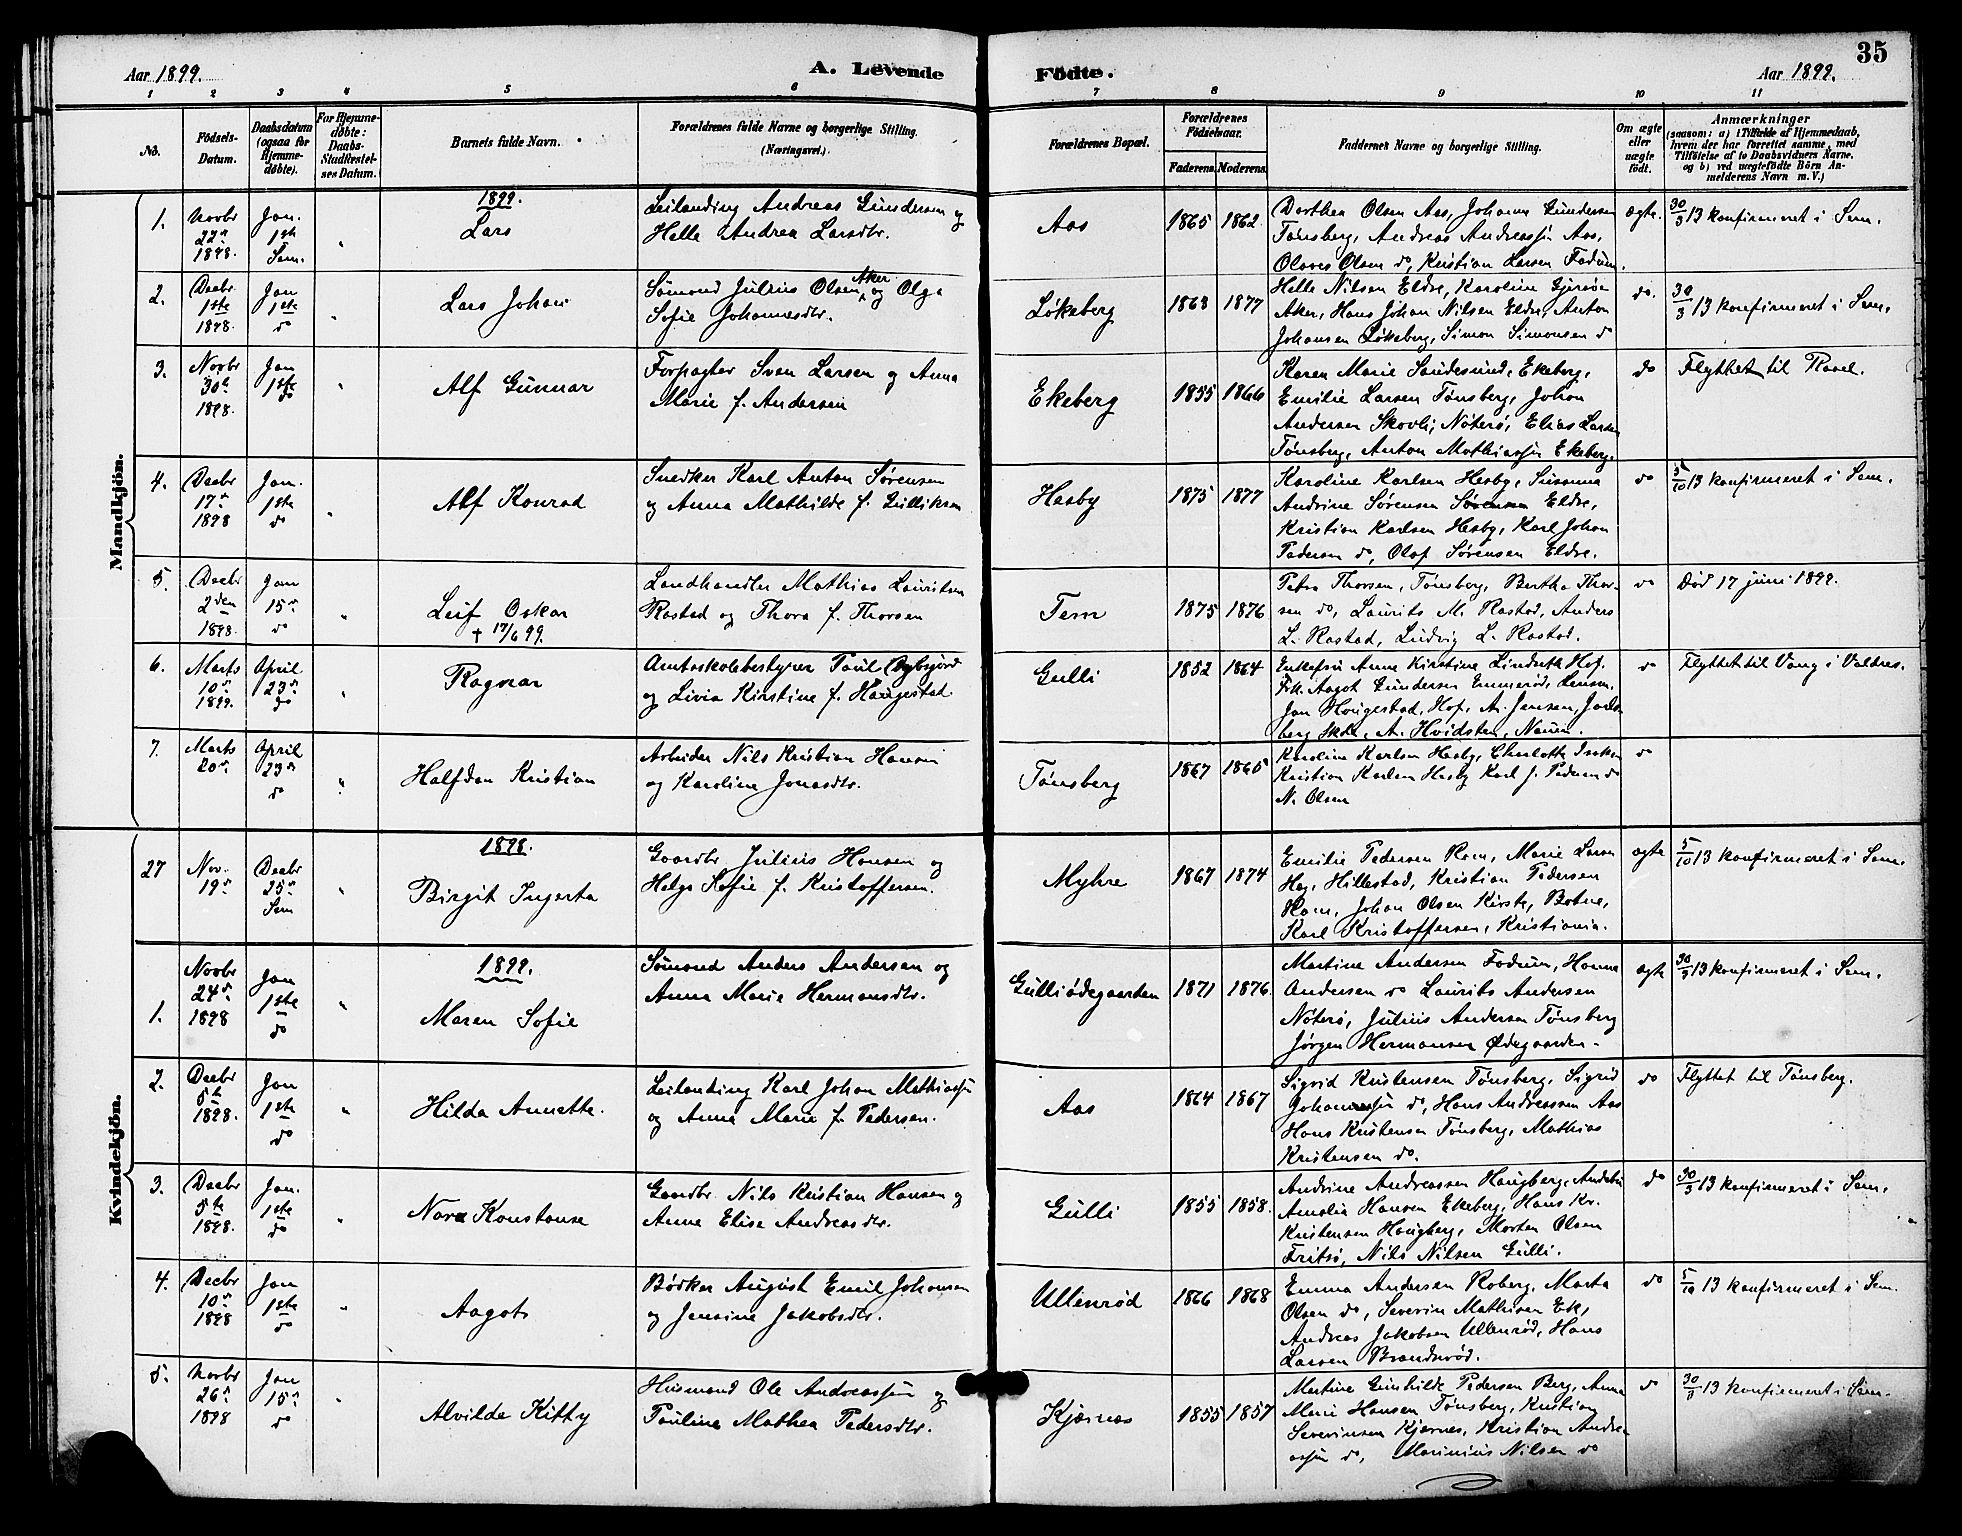 35
Aar 1899.
A. Levende
Födte.
Aar 1899.
1 2 3 4 5 6 7 8 9 10 11
No.
Födsels-
Datum.
Daabsdatum
(ogsaa for
Hjemme-
döbte).
For Hjemme-
döbte:
Daabs-
Stadfæstel-
ses Datum.
Barnets fulde Navn.
Forældrenes fulde Navne og borgerlige Stilling.
(Næringsvei.)
Forældrenes Bopæl.
Forældrenes
Födselsaar.
Faderens.
Moderens.
Faddernes Navne og borgerlige Stilling.
Om ægte
eller
uægte
födt.
Anmærkninger
(saasom: a) i Tilfælde af Hjemmedaab,
hvem der har forrettet samme, med
Tilföielse af to Daabsvidners Navne,
og b) ved uægtefödte Börn An-
melderens Navn m. V.)
Mandkjön.
1899.
1.
Novbr
22n
1898.
Jan.
1ste
Sem.
"
Lars
Leilænding Andreas Gundersen og
Helle Andrea Larsdtr.
Aas
1865
1862
Dorthea Olsen Aas, Johanne Gundersen
Tønsberg, Andreas Andreassen Aas,
Olaves Olsen do, Kristian Larsen Fadum.
ægte.
30/3 13 konfirmeret i Sem.
2.
Decbr
1ste
1898.
Jan
1ste
do
"
Lars Johan
Sømand Julius Olsen Aker og Olga
Sofie Johannesdtr.
Løkeberg
1863
1877
Helle Nilsen Eldre, Karoline Gjersøe
Aker, Hans Johan Nilsen Eldre, Anton
Johansen Løkeberg, Simon Simonsen do
do.
30/3 13 konfirmeret i Sem.
3.
Novbr
30te
1898.
Jan
1ste
do
"
Alf Gunnar
Forpagter Sven Larsen og Anna
Marie f. Andersen
Ekeberg
1855
1866
Karen Marie Sandesund, Ekeberg,
Emilie Larsen Tønsberg, Johan
Andersen Skovli, Nøterø, Elias Larsen
Tønsberg, Anton Mathiassen Ekeberg.
do
Flyttet til Ravel.
4.
Decbr
17n
1898
Jan.
1ste
do
"
Alf Konrad
Snedker Karl Anton Sørensen
og Anna Mathilde f. Gulliksen
Hesby
1875
1877
Karoline Karlsen Hesby, Susanna
Andrine Sørensen Sørensen Eldre,
Kristian Karlsen Hesby, Karl Johan
Pedersen do, Olaf Sørensen Eldre.
do
5/10 13 konfirmeret i Sem.
5.
Decbr
2den
1898.
Jan
15n
do
"
Leif Oskar
† 17/6 99.
Landhandler Mathias Lauritsen
Rastad og Thora f. Thorsen
Tem
1875
1876
Petra Thorsen, Tønsberg, Bertha Thor-
sen do, Laurits M. Rastad, Anders
L. Rastad, Ludvig L. Rastad.
do
Død 17 juni 1899.
6.
Marts
10n
1899.
April
23n
do
"
Ragnar
Amtsskolebestyrer Paul
og Livia Kirstine f. Haugestad
Gulli
1852
1864
Enkefru Anne Kirstine Lindseth Hof.
Frk. Aagot Gundersen Emmerød, Lensm.
Jan Haugestad, Hof, A. Jensen, Jarls-
berg Skole, A. Hvidsten, Nauen.
do
Flyttet til Vang i Valdres.
7.
Marts
20n
April
23n
do
"
Halfdan Kristian
Arbeider Nils Kristian Hansen
og Karoline Jonasdtr.
Tønsberg
1867
1865
Karoline Karlsen Hesby, Charlotte Isaksen
Kristian Karlsen Hesby Karl J. Pedersen do
N. Olsen
do
Kvindekjön.
1898.
27
Nov.
19n
Decbr
25n
Sem
"
Birgit Ingerta
Gaardbr. Julius Hansen og
Helga Sofie f. Kristoffersen.
Myhre
1867
1874
Emilie Pedersen Ram, Marie Larsen
Hag, Hillestad, Kristian Pedersen
Ram, Johan Olsen Kirste, Botne,
Karl Kristoffersen, Kristiania.
ægte
5/10 13 konfirmeret i Sem.
1899.
1.
Novbr
24n
1898
Jan
1ste
do
"
Maren Sofie
Sømand Anders Andersen og
Anna Marie Hermansdtr.
Gulliødegaarden
1871
1876.
Martine Andersen Fadum, Hanna
Andersen do Laurits Andersen
Nøterø, Julius Andersen Tønsberg
Jørgen Hermansen Ødegaarden.
ægte
30/3 13 konfirmeret i Sem.
2.
Decbr
5te
1898.
Jan
1ste
do
"
Hilda Annette.
Leilænding Karl Johan Mathiassen
og Anna Marie f. Pedersen.
Aas
1864
1867
Sigrid Kristensen Tønsberg, Sigrid
Johannessen do, Hans Andreassen Aas
Hans Kristensen Tønsberg, Mathias
Kristensen do.
do
Flyttet til Tønsberg.
3.
Decbr
5te
1898.
Jan.
1ste
do
"
Nora Konstanse
Gaardbr. Nils Kristian Hansen og
Anne Elise Andreasdtr.
Gulli
1855
1858.
Andrine Andreassen Haugberg, Andebu
Amalie Hansen Ekeberg, Hans Kr.
Kristensen Haugberg, Morten Olsen
Fritsø, Nils Nilsen Gulli.
do
30/3 13 konfirmeret i Sem.
4.
Decbr
10n
1898
Jan
1ste
do
"
Aagot
Bødker August Emil Johansen
og Jensine Jakobsdtr.
Ullenrød
1866
1868
Emma Andersen Roberg, Marta
Olsen do, Severin Mathisen Ek,
Andreas Jakobsen Ullenrød, Hans
Larsen Brandsrød.
do
5/10 13 konfirmeret i Sem.
5.
Novbr
26n
1898
Jan
15n
do
"
Alvilde Kitty
Husmand Ole Andreassen og
Pauline Mathea Pedersdtr.
Kjærnes
1855
1857
Martine Gunhilde Pedersen Berg, Anna
Marie Hansen Tønsberg, Kristian
Severinsen Kjernes, Kristian Andre-
assen do, Marinius Nilsen do
do
30/3 13 konfirmeret i Sem.